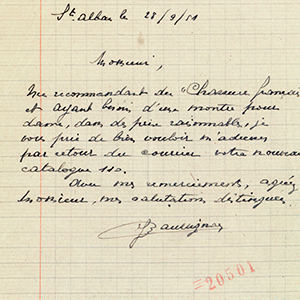 St alban le 28/9/51
Monsieur,
Me recommandant du "Chasseur français
et ayant besoin d'une montre pour
dame, dans de prix raisonnable, je
vous prie de bien vouloir m'adresser
par retour du courrier votre nouveau
catalogue 110.
Avec mes remerciements, agréez
Monsieur, mes salutations distinguées.
=20501